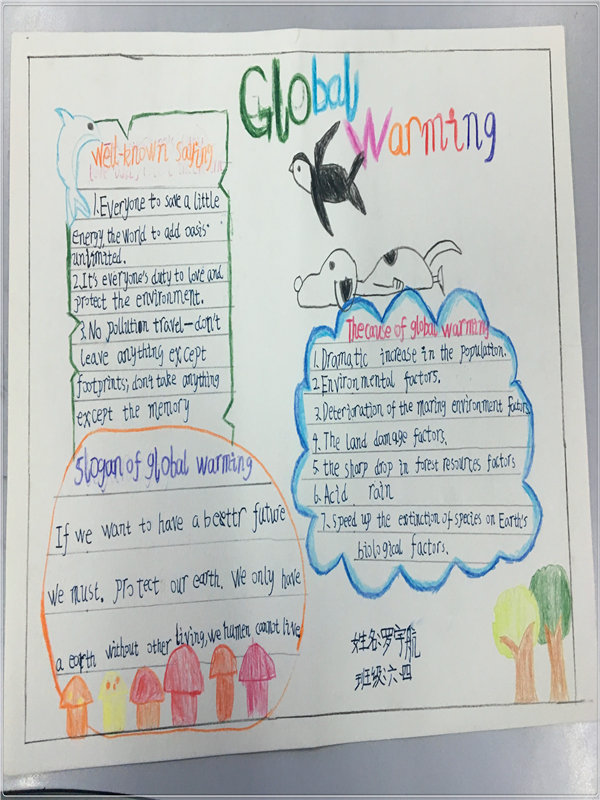 Global
Warming
Well-known saying
1. Everyone to save a little
energy, the world to add oasis
unlimited.
2. It's everyone's duty to love and
protect the environment.
3. No pollution travel—don't
leave anything except
footprints; don't take anything
except the memory
Slogan of global warming
If we want to have a beettr future
we must. protect our earth. We only have
a earth without other living, we human cannot live
The cause of global warming
1. Dramatic increase in the population.
2. Environmental factors.
3. Deterioration of the maring environment factors
4. The land damage factors.
5. the sharp drop in forest resources factors
6. Acid rain
7. Speed up the extinction of species on Earth's
biological factors.
姓名:罗宇航
班级:六.四